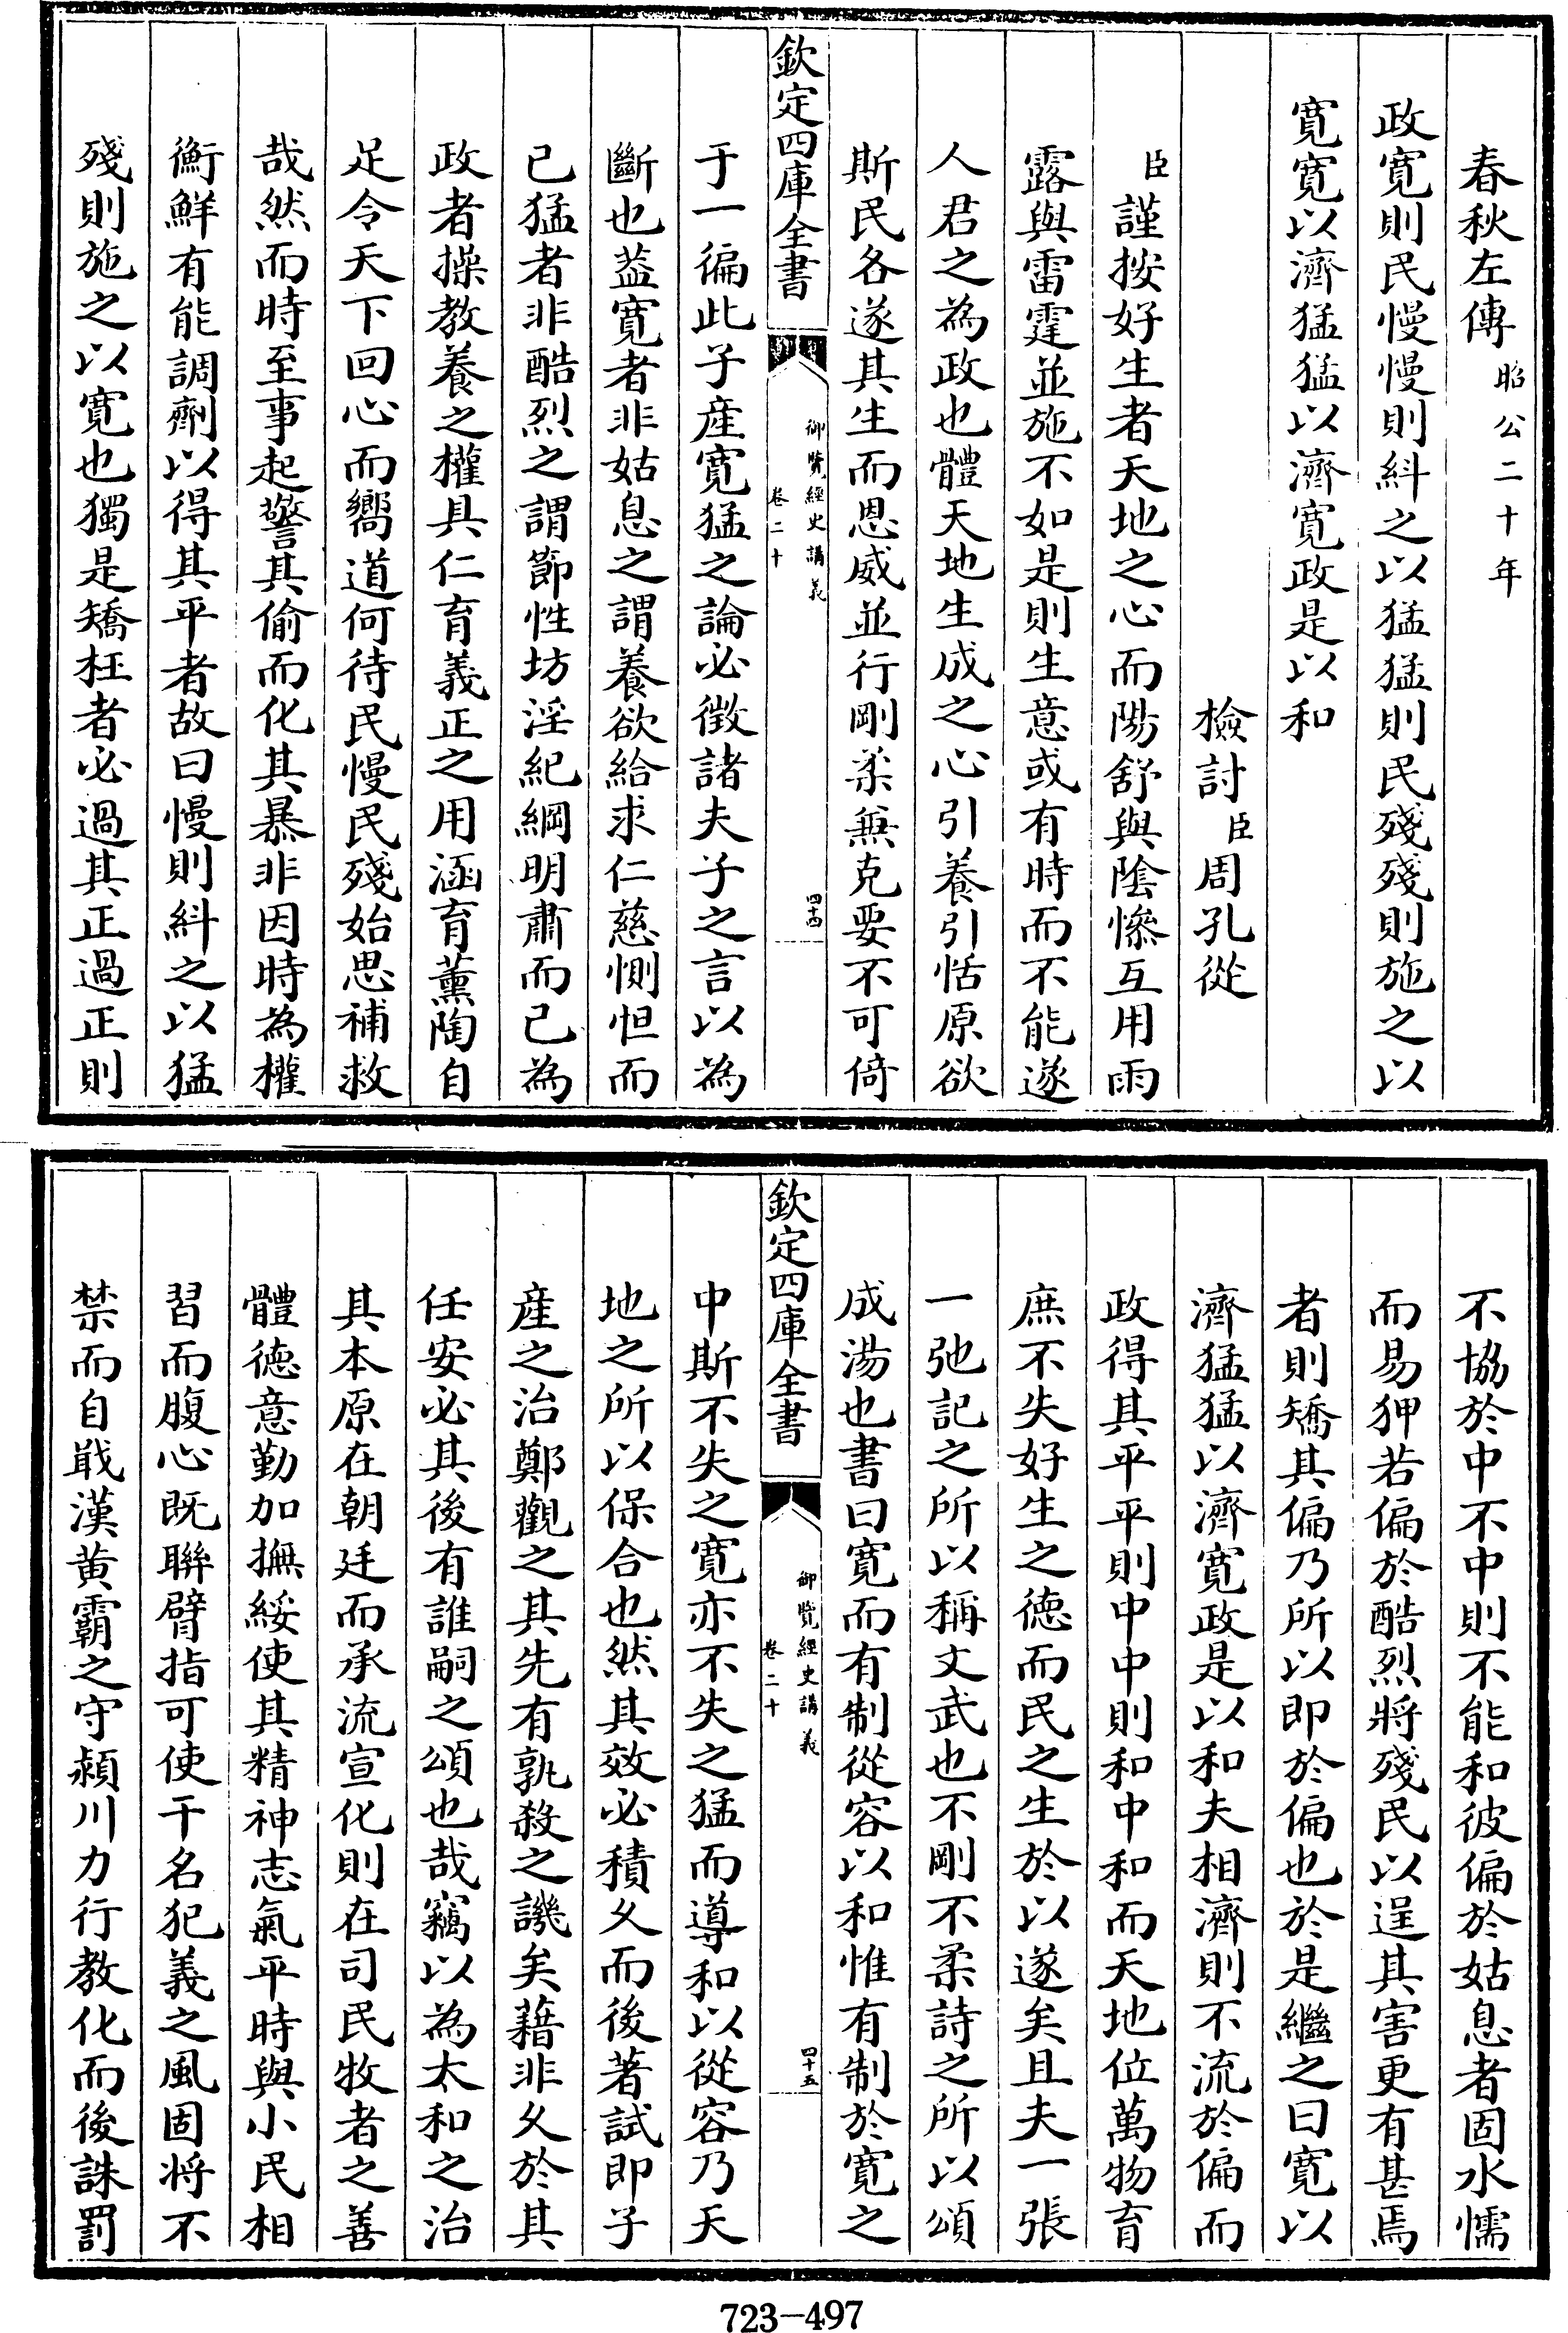 春秋左傳昭公二十年
政寛則民慢慢則糾之以猛猛則民殘殘則施之以
寛寛以濟猛猛以濟寛政是以和
檢討臣周孔從
臣謹按好生者天地之心而陽舒與陰慘互用雨
露與雷霆並施不如是則生意或有時而不能遂
人君之為政也體天地生成之心引養引恬原欲
斯民各遂其生而恩威並行剛柔無克要不可倚
欽定四庫全書
御覽經史講義
卷二十
四十四
于一偏此子産寛猛之論必徴諸夫子之言以為
斷也葢寛者非姑息之謂養欲給求仁慈惻怛而
已猛者非酷烈之謂節性坊淫紀綱明肅而已為
政者操教養之權具仁育義正之用涵育薰陶自
足令天下回心而嚮道何待民慢民殘始思補救
哉然而時至事起警其偷而化其暴非因時為權
衡鮮有能調劑以得其平者故曰慢則糾之以猛
殘則施之以寛也獨是矯枉者必過其正過正則
不協於中不中則不能和彼偏於姑息者固水懦
而易狎若偏於酷烈將殘民以逞其害更有甚焉
者則矯其偏乃所以即於偏也於是繼之曰寛以
濟猛猛以濟寛政是以和夫相濟則不流於偏而
政得其平平則中中則和中和而天地位萬物育
庶不失好生之徳而民之生於以遂矣且夫一張
一弛記之所以稱文武也不剛不柔詩之所以頌
成湯也書曰寛而有制從容以和惟有制於寛之
欽定四庫全書
御覽經史講義
卷二十
四十五
中斯不失之寛亦不失之猛而導和以從容乃天
地之所以保合也然其效必積乆而後著試即子
産之治鄭觀之其先有孰殺之譏矣藉非乆於其
任安必其後有誰嗣之頌也哉竊以為太和之治
其本原在朝廷而承流宣化則在司民牧者之善
體徳意勤加撫綏使其精神志氣平時與小民相
習而腹心既聨臂指可使干名犯義之風固将不
禁而自戢漢黄霸之守潁川力行教化而後誅罰
723—497